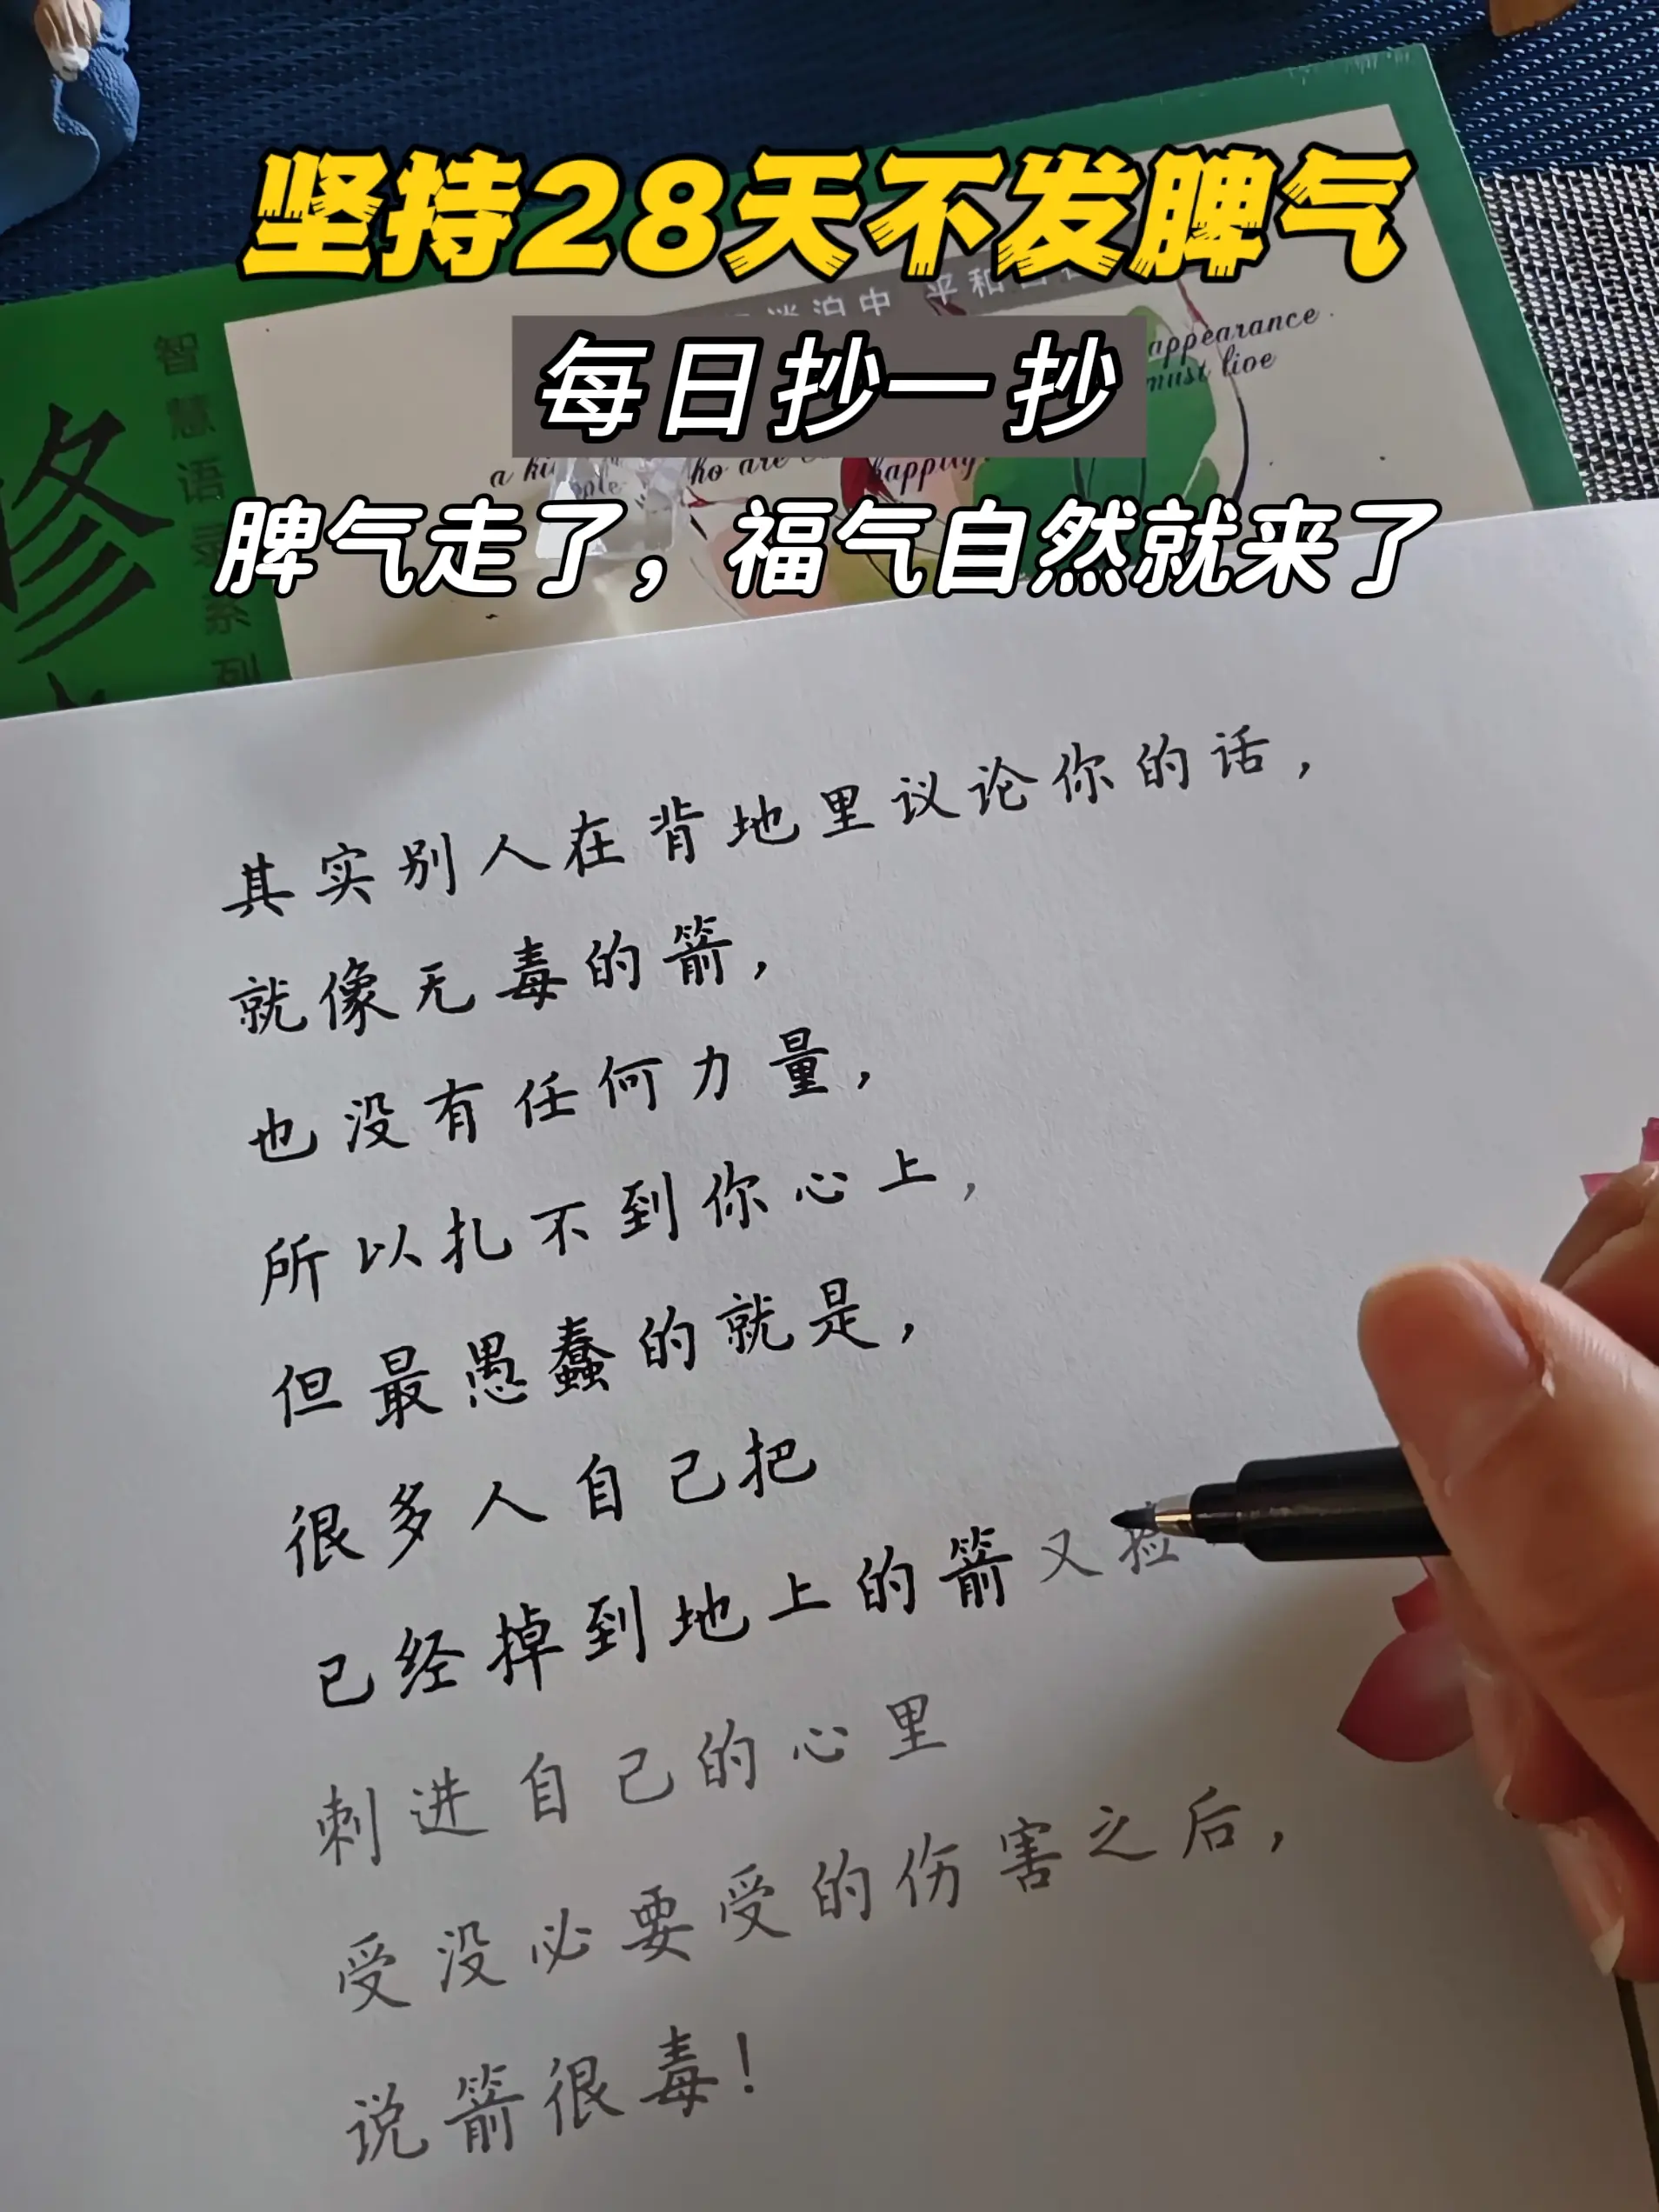 坚持28天不发脾气
平和
泊中
每日抄一抄
appearance
must live
a
who are
happily
脾气走了，福气自然就来了
智慧语录系列
修
其实别人在背地里议论你的话，
就像无毒的箭，
也没有任何力量，
所以扎不到你心上，
但最愚蠢的就是，
很多人自己把
已经掉到地上的箭又捡
刺进自己的心里
受没必要受的伤害之后，
说箭很毒！